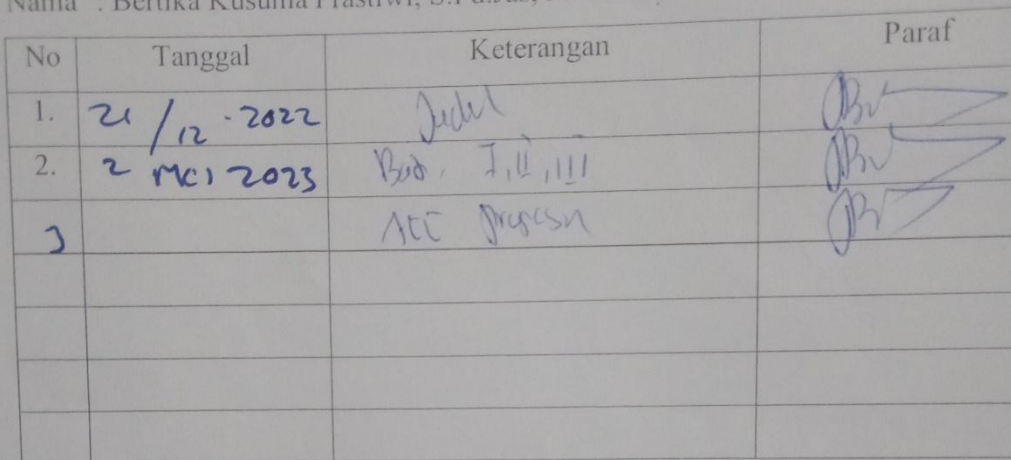 Nama : Bertika Kusuma Prastiwi,
No Tanggal Keterangan Paraf
1. 21/12-2022 Judul
2. 2 Mei 2023 Bab. I, II, III
3 ACC proposal